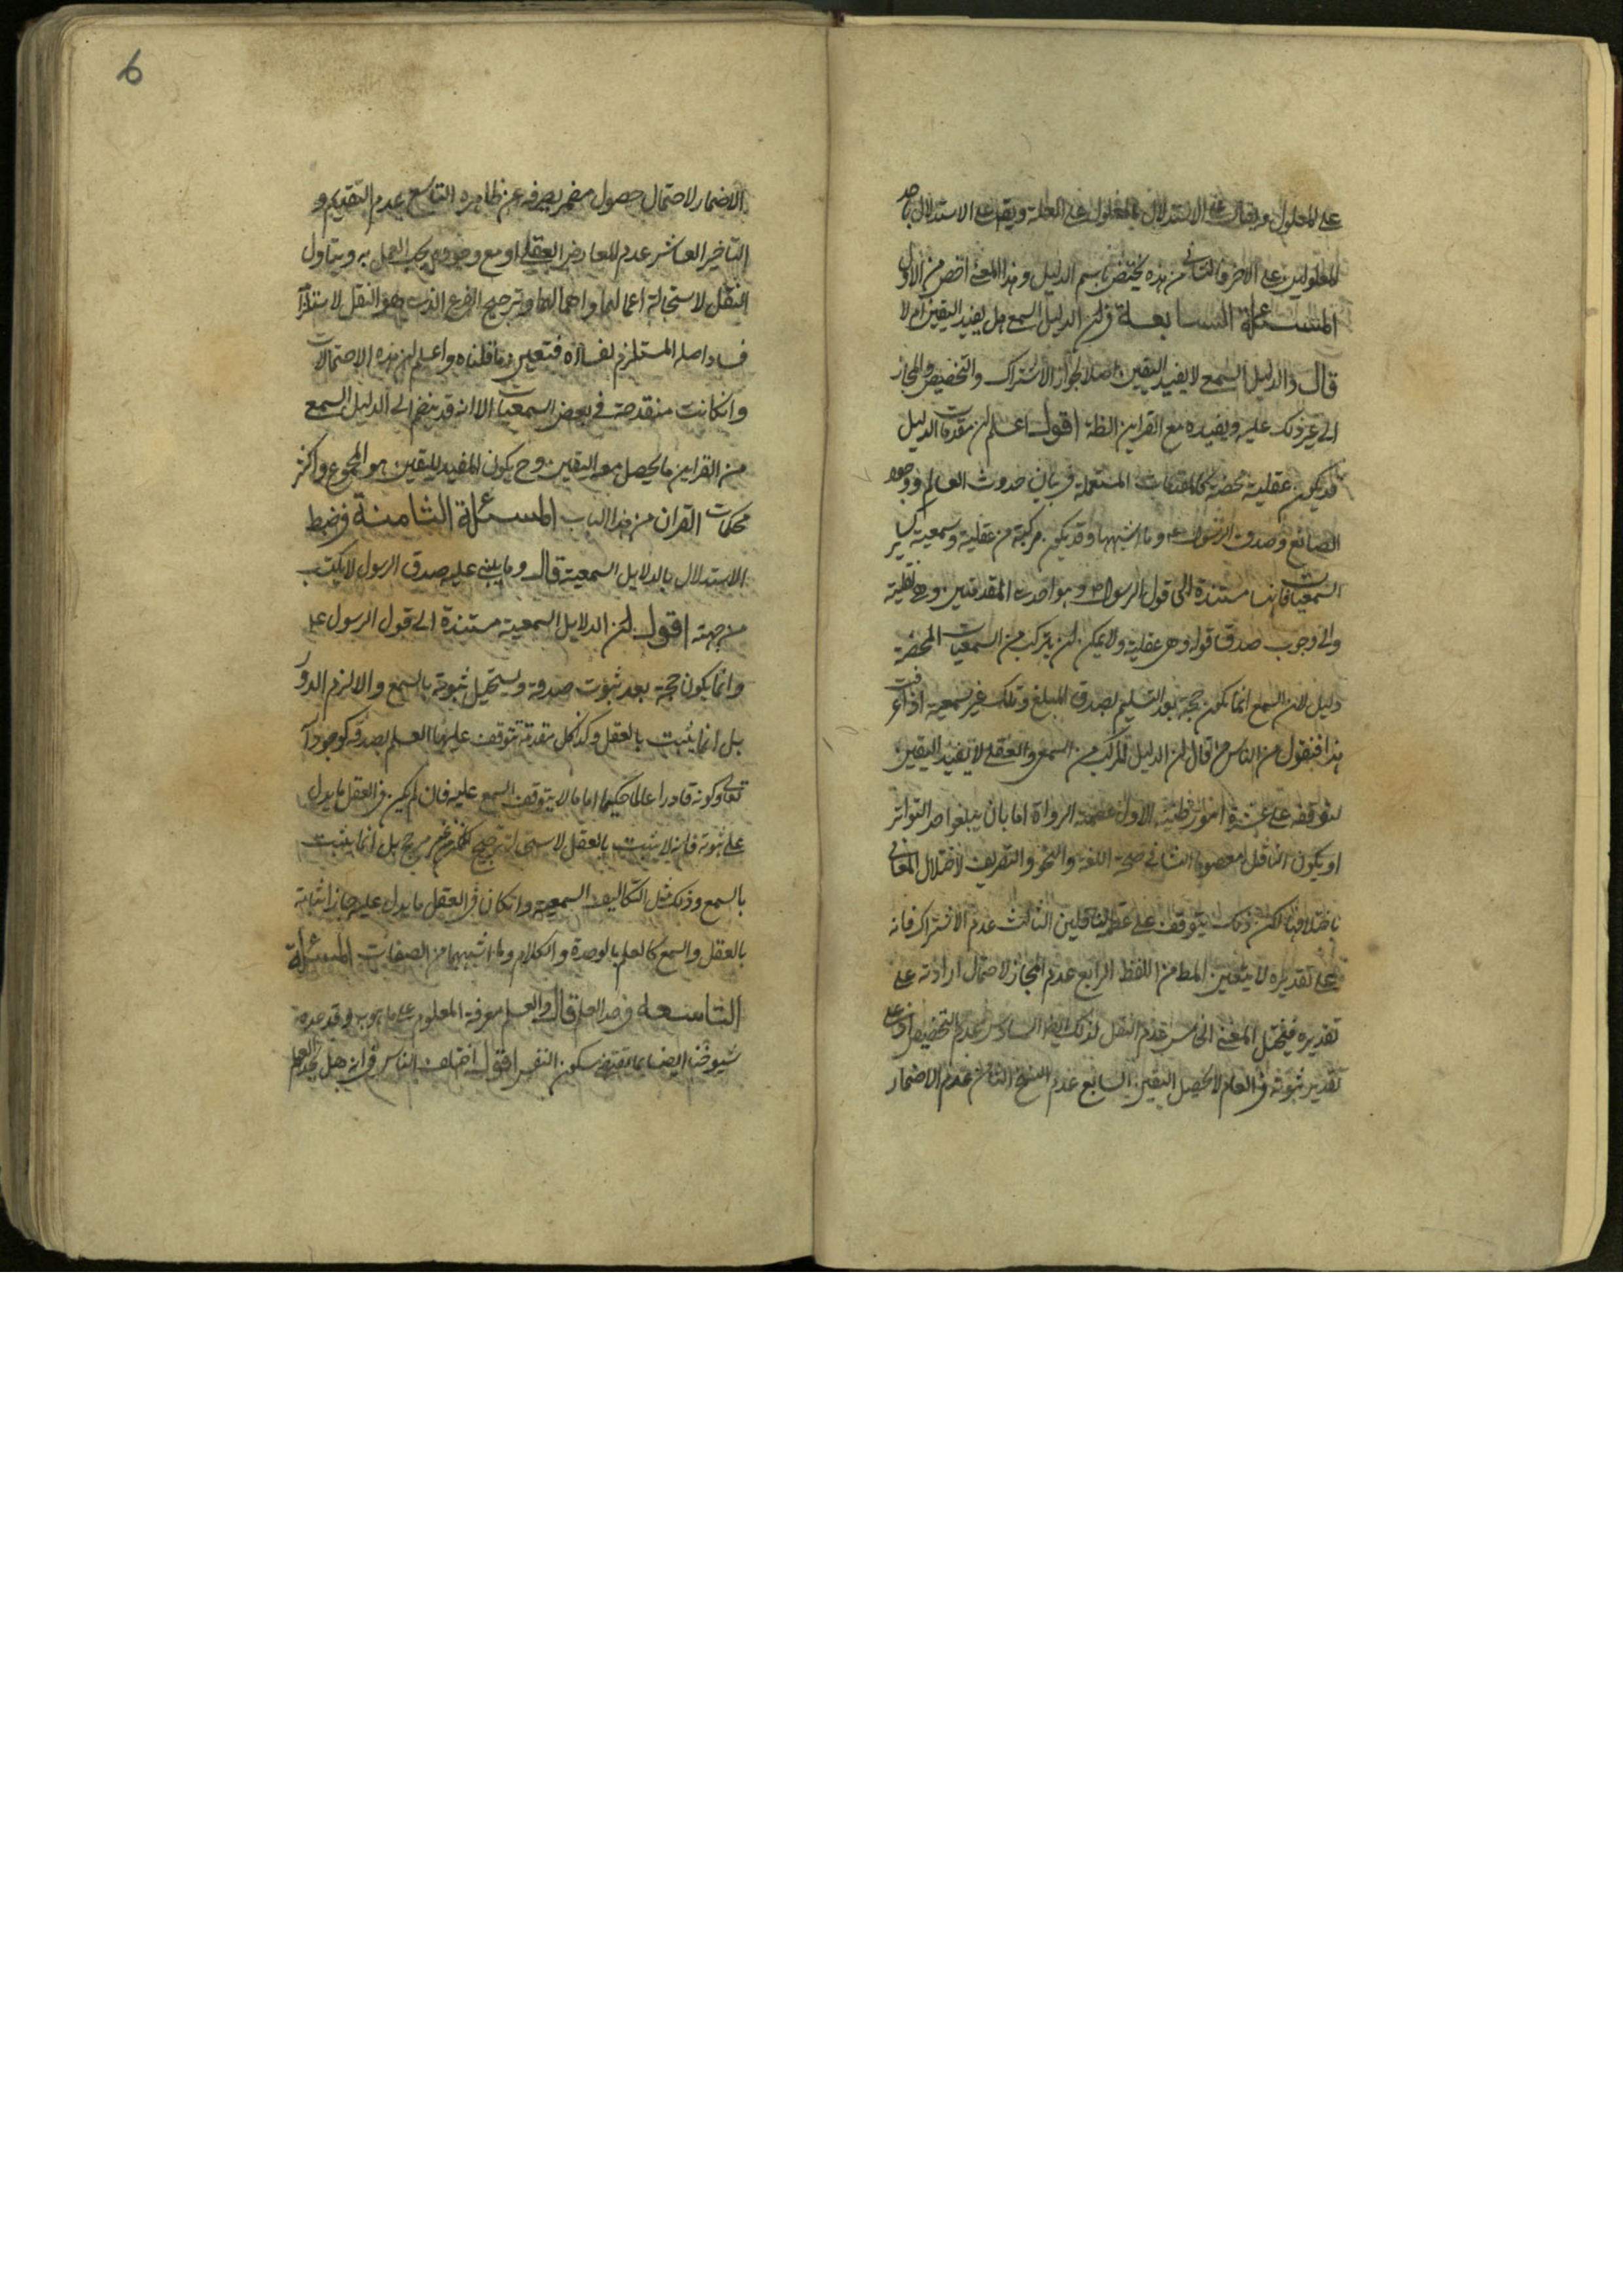 على المعلول ويقال على الاستدلال بالمعلول على العلة ويقال على الاستدلال باحد
المعلولين على الاخر والثاني من هذه يختص باسم الدليل وهذا المعنى اخص من الاول
المسئلة السابعة في ان الدليل السمع هل يفيد اليقين ام لا
قال والدليل السمع لا يفيد اليقين اصلا لجواز الاشتراك والتخصيص والمجاز
الى غير ذلك عليه ويفيده مع القراين الظنه اقول اعلم ان مقدمات الدليل
قد يكون عقلية محضة كالمقدمات المستعملة في بيان حدوث العالم ووجود
الصانع وصدق الرسول ع وما اشبهها وقد يكون مركبة من عقلية وسمعية كساير
السمعيات فانها مستندة الى قول الرسول ص وهو احدى المقدمتين وهي نقلية
والى وجوب صدق قوله وهي عقلية ولا يمكن ان يتركب من السمعيات المحضة
دليل لان السمع انما يكون حجة بعد التسليم بصدق المبلغ وتلك غير سمعية اذا عرفت
هذا فنقول من الناس من قال ان الدليل المركب من السمعي والعقلي لا يفيد اليقين
لتوقفه على عشرة امور ظنية الاول عصمة الرواة اما بان يبلغوا حد التواتر
او يكون الناقل معصوما الثاني صحة اللغة والنحو والتصريف لاختلال المعاني
باختلافها لكن ذلك يتوقف على عصمة الناقلين الثالث عدم الاشتراك فانه
على تقديره لا يتعين المط من اللفظ الرابع عدم المجاز لاحتمال ارادته على
تقديره فيختل المعنى الخامس عدم النقل لذلك ايضا السادس عدم التخصيص اذ على
تقدير ثبوته في العام لا يحصل اليقين السابع عدم النسخ الثامن عدم الاضمار
6
الاضمار لاحتمال حصول مضمر يصرفه عن ظاهره التاسع عدم التقديم و
التاخير العاشر عدم المعارض العقلي او مع وجوده يجب العمل به ويتاول
النقل لاستحالة اعمالهما واهمالهما وترجيح الفرع الذي هو النقل لاستلزامه
فساد اصله المستلزم لفساده فتعين ما قلناه واعلم ان هذه الاحتمالات
وان كانت منقدحة في بعض السمعيات الا انه قد ينضم الى الدليل السمع
من القراين ما يحصل معه اليقين وح يكون المفيد لليقين هو المجموع واكثر
محكمات القران من هذا الباب المسئلة الثامنة في ضبط
الاستدلال بالدلايل السمعية قال وما يبنى عليه صدق الرسول لا يكتب
من جهته اقول ان الدلايل السمعية مستندة الى قول الرسول ع
وانما يكون حجة بعد ثبوت صدقه ويستحيل ثبوته بالسمع والا لزم الدور
بل انما يثبت بالعقل وكذا كل مقدمة يتوقف عليها العلم بصدقه كوجوده
تعالى وكونه قادرا عالما حكيما اما ما لا يتوقف السمع عليه فان لم يكن في العقل ما يدل
على ثبوته فانه لا يثبت بالعقل لاستحالة ترجيح الممكن من غير مرجح بل انما يثبت
بالسمع وذلك مثل التكاليف السمعية وان كان في العقل ما يدل عليه جاز اثباته
بالعقل والسمع كالعلم بالوحدة والكلام وما اشبههما من الصفات المسئلة
التاسعة في حد العلم قال والعلم معرفة المعلوم على ما هو به وقد عده
شيوخنا ايضا بما يقتضي سكون النفس اقول اختلف الناس في انه هل يحد العلم